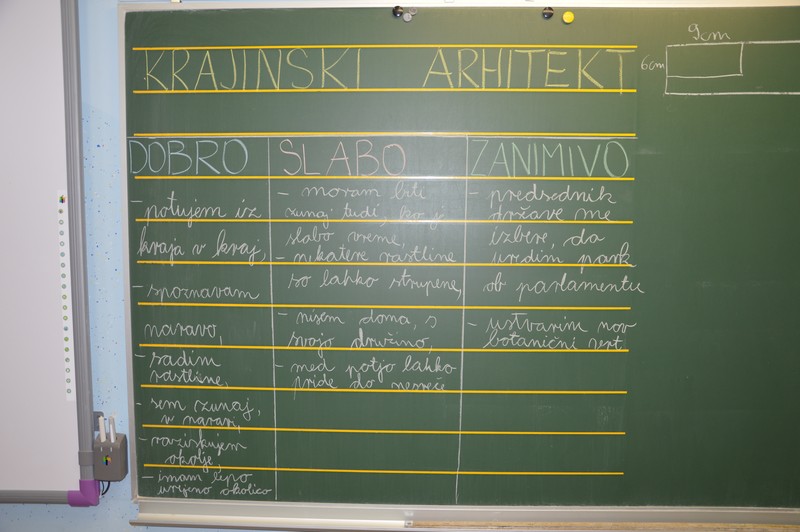 KRAJINSKI ARHITEKT
9cm
6cm
DOBRO
- potujem iz
kraja v kraj,
- spoznavam
naravo,
- sadim
rastline,
- sem zunaj,
v naravi,
- raziskujem
okolje,
- imam lepo
urejeno okolico
SLABO
- moram biti
zunaj tudi, ko je
slabo vreme,
- nekatere rastline
so lahko strupene,
- nisem doma, s
svojo družino,
- med potjo lahko
pride do nesreče
ZANIMIVO
- predsednik
države me
izbere, da
uredim park
ob parlamentu
- ustvarim nov
botanični vrt.